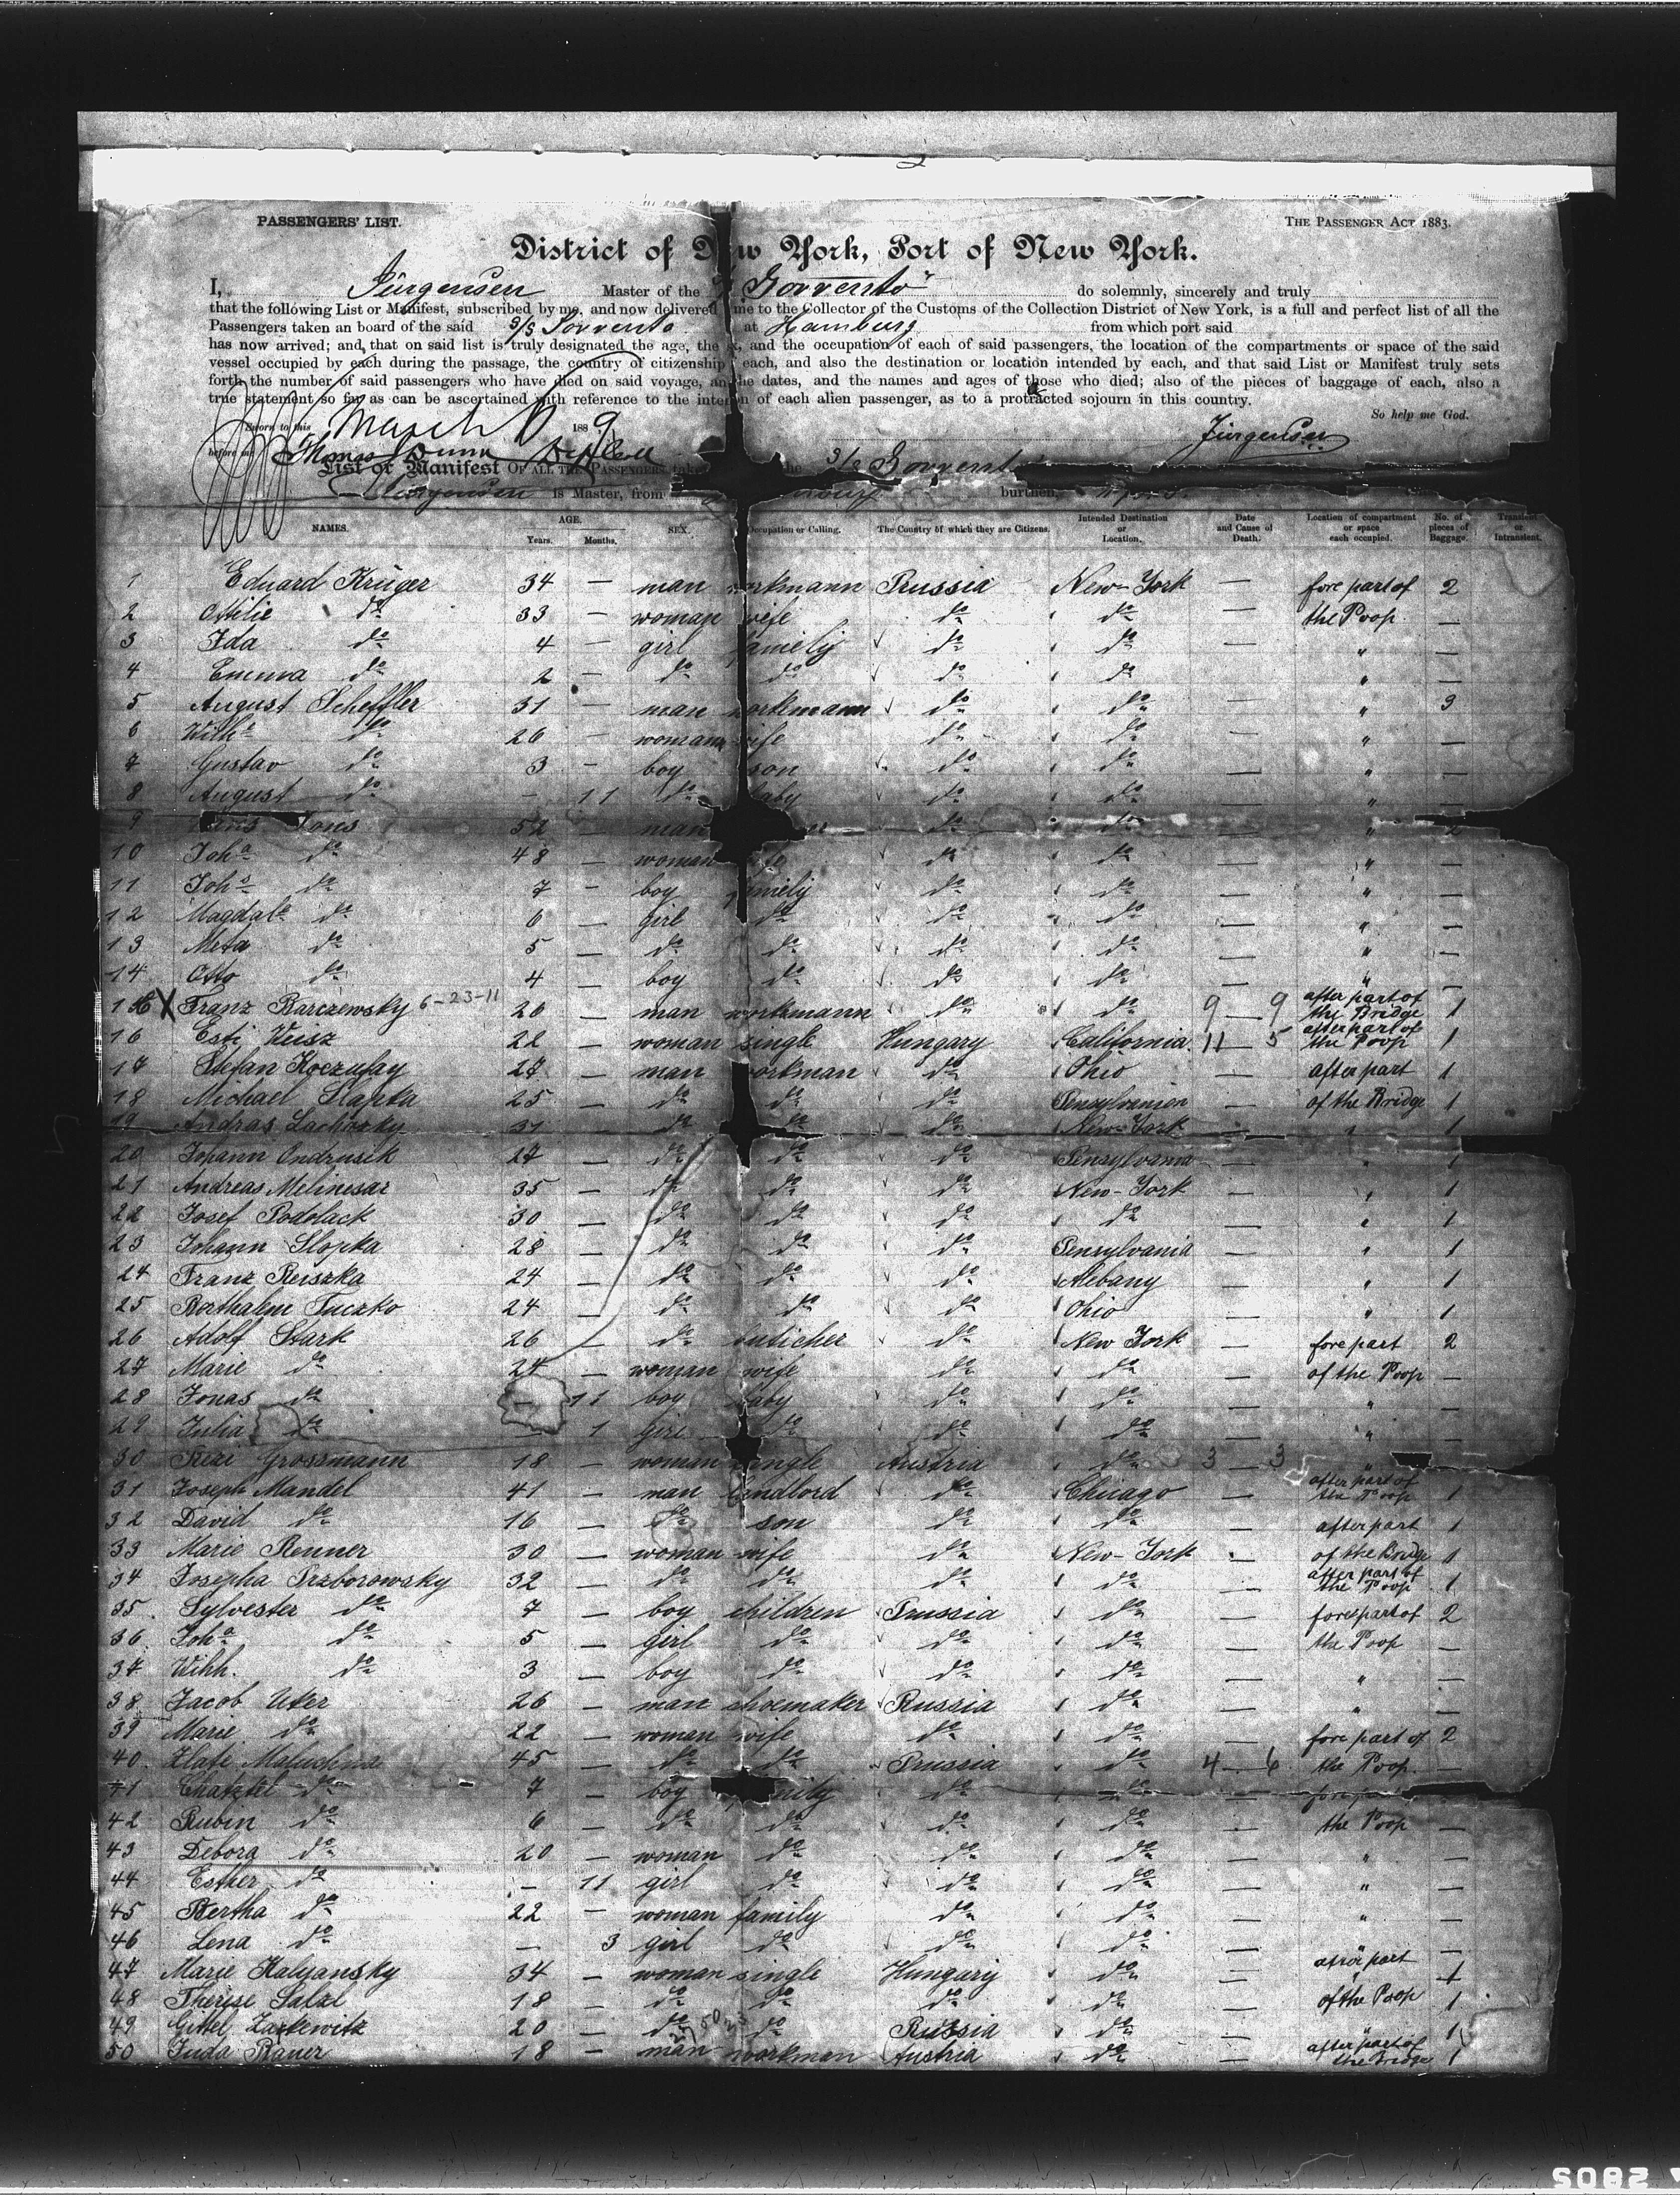 PASSENGERS' LIST. THE PASSENGER ACT 1883.
District of New York, Port of New York.
I, Jürgensen Master of the Sorrento do solemnly, sincerely and truly
that the following List or Manifest, subscribed by me, and now delivered me to the Collector of the Customs of the Collection District of New York, is a full and perfect list of all the
Passengers taken an board of the said S/S Sorrento at Hamburg from which port said
has now arrived; and, that on said list is truly designated the age, the and the occupation of each of said passengers, the location of the compartments or space of the said
vessel occupied by each during the passage, the country of citizenship each, and also the destination or location intended by each, and that said List or Manifest truly sets
forth the number of said passengers who have died on said voyage, and the dates, and the names and ages of those who died; also of the pieces of baggage of each, also a
true statement so far as can be ascertained with reference to the of each alien passenger, as to a protracted sojourn in this country.
So help me God.
Sworn to this March 1889 Jürgensen
before me Thomas Dunn
List or Manifest OF ALL THE PASSENGERS taken the S/S Sorrento
Jürgensen is Master, from burthen,
NAMES. AGE. Years. Months. SEX. Occupation or Calling. The Country of which they are Citizens. Intended Destination or Location. Date and Cause of Death. Location of compartment or space each occupied. No. of pieces of Baggage. Transient or Intransient.
1 Eduard Krüger 34 — man workmann Prussia New-York — fore part of 2
2 Ottilie do 33 — woman wife do do — the Poop —
3 Ida do 4 — girl familiy do do — " —
4 Emma do 2 — do do do do " —
5 August Scheffler 31 — man workmann do do — " 3
6 Wilhe do 26 — woman wife do do — " —
7 Gustav do 3 — boy son do do — " —
8 August do — 11 do baby do do — " —
9 52 — man do do — " 2
10 Joha do 48 — woman wife do do — " —
11 Johs do 7 — boy familiy do do — " —
12 Magdale do 6 — girl do do do — " —
13 Meta do 5 — do do do do — " —
14 Otto do 4 — boy do do do — " —
15 X Franz Barczewsky 6-23-11 26 — man workmann do do 9 — 9 after part of the Bridge 1
16 Esti Weisz 22 — woman single Hungary California 11 — 5 after part of the Poop 1
17 Stefan Koczufay 27 — man workman do Ohio — after part 1
18 Michael Slapka 25 — do do do Pensylvanien — of the Bridge 1
19 Andras Lachozky 31 — do do do New-York — " 1
20 Johann Ondrusik 27 — do do do Pensylvania — " 1
21 Andreas Melinesar 35 — do do do New-York — " 1
22 Josef Podolack 30 — do do do do — " 1
23 Johann Slopka 28 — do do do Pensylvania — " 1
24 Franz Reiszka 24 — do do do Albany — " 1
25 Barthalem Tuczko 24 — do do do Ohio — " 1
26 Adolf Stark 26 — do buticher do New York — fore part 2
27 Marie do 24 — woman wife do do — of the Poop —
28 Jonas do — 11 boy baby do do — " —
29 Julia do — 1 girl do do do — " —
30 Rezi Grossmann 18 — woman single Austria do 3 — 3 "
31 Joseph Mandel 41 — man landlord do Chicago — after part of the Poop 1
32 David do 16 — do son do do — after part 1
33 Marie Renner 30 — woman wife do New-York — of the Bridge 1
34 Josepha Przborowsky 32 — do do do do — after part of the Poop 1
35 Sylvester do 7 — boy children Prussia do — fore part of 2
36 Joha do 5 — girl do do do — the Poop —
37 Wilh. do 3 — boy do do do — " —
38 Jacob Uter 26 — man shoemaker Russia do — " —
39 Marie do 22 — woman wife do do — fore part of 2
40 Zlate 45 — do do Prussia do 4 — 6 the Poop —
41 Chatzkel do 7 — boy family do do — fore part
42 Rubin do 6 — do do do do — the Poop —
43 Debora do 20 — woman do do do — " —
44 Esther do — 11 girl do do do — " —
45 Bertha do 22 — woman family do do — " —
46 Lena do — 3 girl do do do — " —
47 Marie Kalyansky 34 — woman single Hungary do — after part 1
48 Therese Salzl 18 — do do do do — of the Poop 1
49 Gittel Zaskewitz 20 — do do Russia do — " 1
50 Juda Bauer 18 — man workman Austria do — after part of the Bridge 1